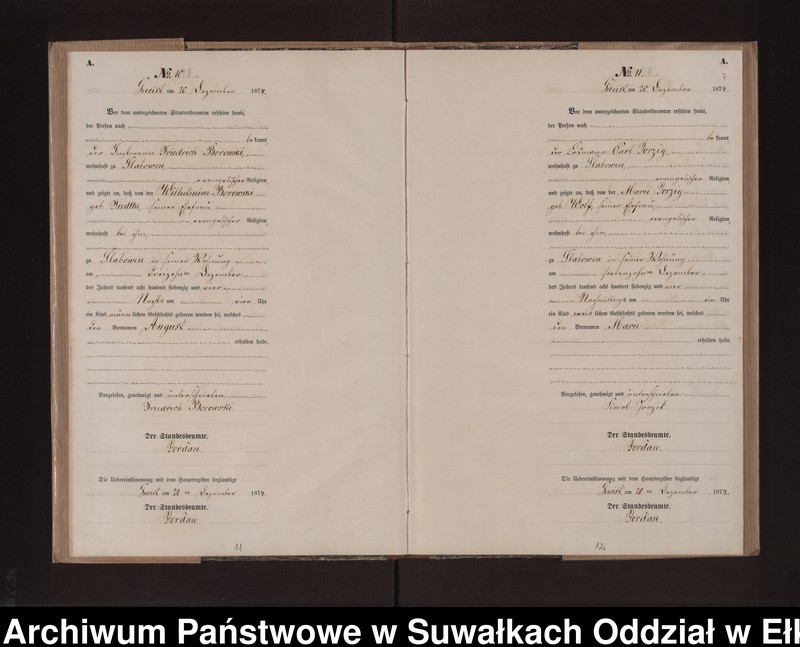 A.
No. 10.
am 20 Dezember 1874.
Vor dem unterzeichneten Standesbeamten erschien heute,
der Person nach
be kannt,
der Friedrich Borowski,
wohnhaft zu Slabowen,
evangelischer Religion,
und zeigte an, daß von der Wilhelmine Borowski
geb. seiner Ehefrau,
evangelischer Religion,
wohnhaft bei ihm,
zu Slabowen in seiner Wohnung
am Dezember
des Jahres tausend acht hundert siebenzig und vier
Nachts um vier Uhr
ein Kind männlichen Geschlechts geboren worden sei, welches
den Vornamen August
erhalten habe.
Vorgelesen, genehmigt und unterschrieben
Friedrich Borowski.
Der Standesbeamte.
Jordan.
Die Uebereinstimmung mit dem Hauptregister beglaubigt
am 20ten Dezember 1874.
Der Standesbeamte.
Jordan.
11
A.
7
No. 11.
am 20. Dezember 1874.
Vor dem unterzeichneten Standesbeamten erschien heute,
der Person nach
be kannt,
der Carl Jorzig,
wohnhaft zu Slabowen,
evangelischer Religion,
und zeigte an, daß von der Marie Jorzig
geb. Wolf, seiner Ehefrau,
evangelischer Religion,
wohnhaft bei ihm,
zu Slabowen in seiner Wohnung
am siebenzehnten Dezember
des Jahres tausend acht hundert siebenzig und vier
Nachmittags um ein Uhr
ein Kind weiblichen Geschlechts geboren worden sei, welches
den Vornamen Marie
erhalten habe.
Vorgelesen, genehmigt und unterschrieben
Karl
Der Standesbeamte.
Jordan.
Die Uebereinstimmung mit dem Hauptregister beglaubigt
am 20ten Dezember 1874.
Der Standesbeamte.
Jordan.
12
Archiwum Państwowe w Suwałkach Oddział w Ełk